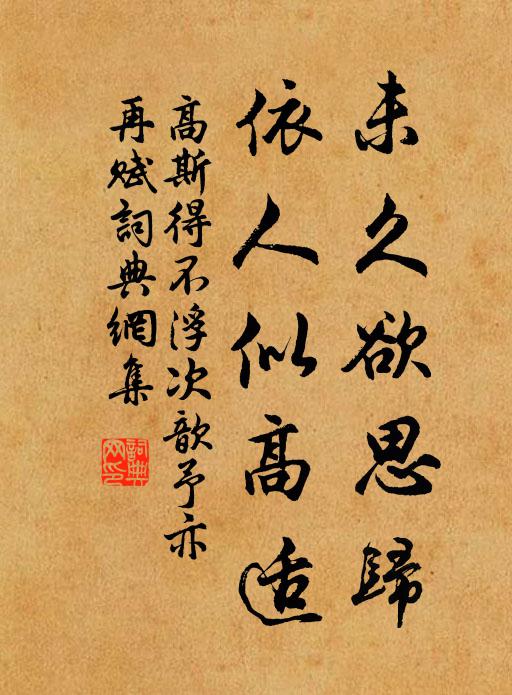 未久欲思歸
依人似高适
高斯得不浮次歆予亦
再赋詞典網集
詞典网印